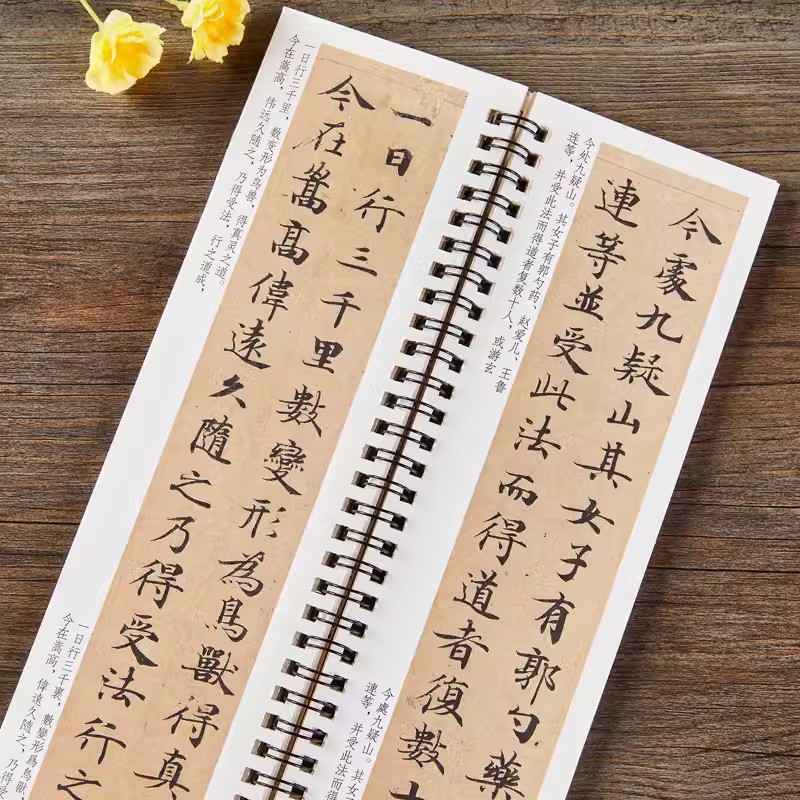 一日行三千里，数变形为鸟兽，得真灵之道。
今在嵩高，伟远久随之，乃得受法，行之道成，
一日行三千里數變形為鳥獸得真
今在嵩高偉遠久隨之乃得受法行之
一日行三千裏，數變形爲鳥獸，
今在嵩高，偉遠久隨之，乃得受
今处九疑山。其女子有郭勺药、赵爱儿、王鲁
连等，并受此法而得道者复数十人，或游玄
今處九疑山其女子有郭勺藥
連等並受此法而得道者復數十
今處九疑山。其
連等，并受此法而得